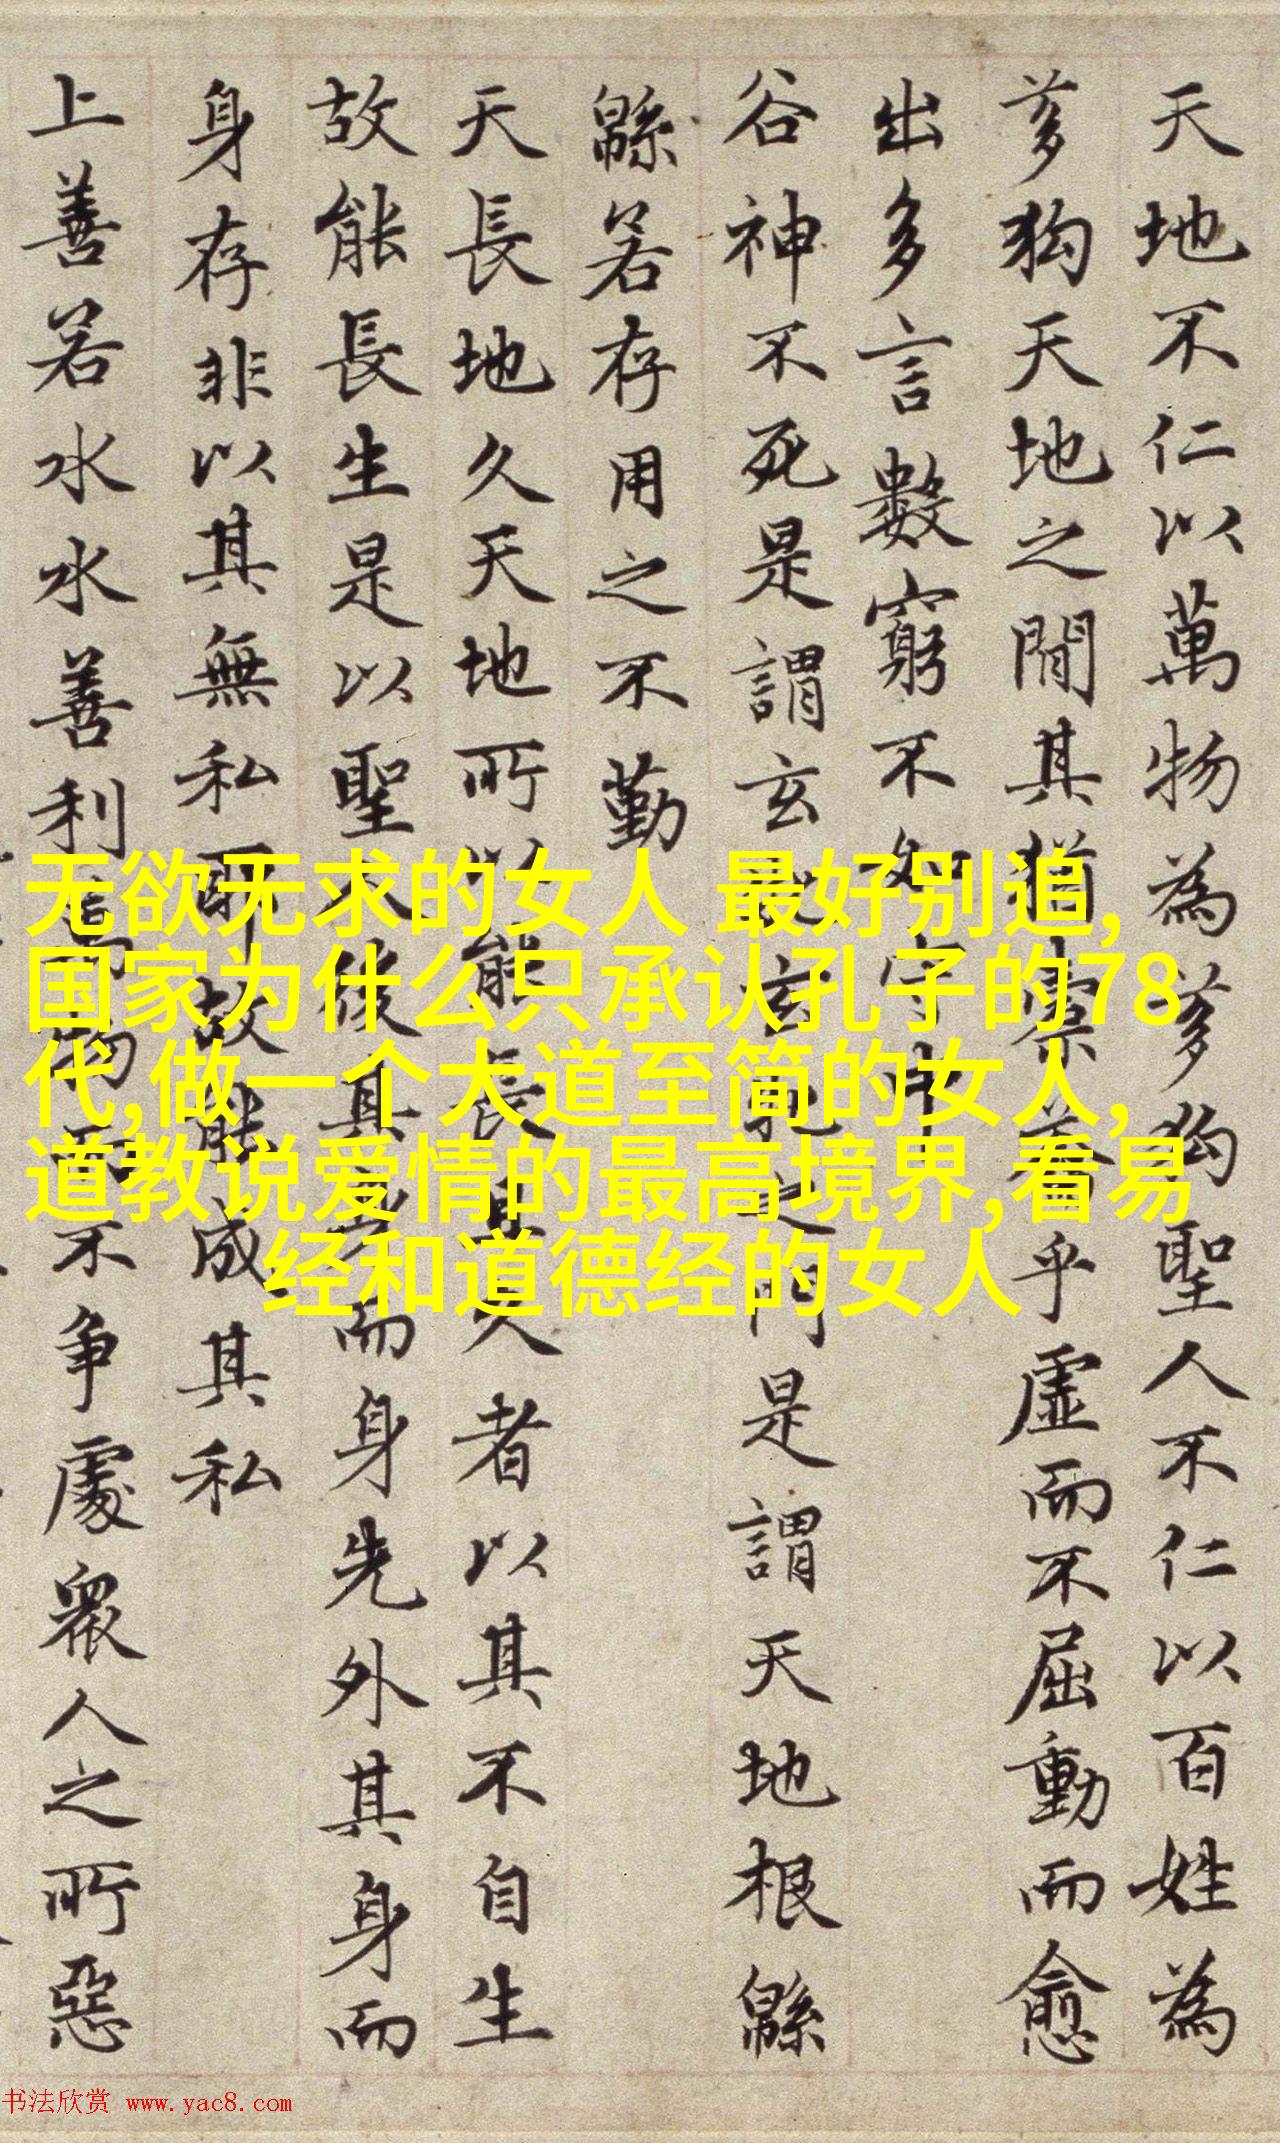 天地不仁以萬物為芻狗聖人不仁以百姓為
芻狗天地之間其猶橐籥乎虛而不屈動而愈
出多言數窮不如守中
谷神不死是謂玄牝玄牝之門是謂天地根緜
緜若存用之不勤
天長地久天地所以能長且久者以其不自生
故能長生是以聖人後其身而身先外其身而
身存非以其無私耶故能成其私
上善若水水善利萬物而不爭處衆人之所惡
无欲无求的女人 最好别追,
国家为什么只承认孔子的78
代,做一个大道至简的女人,
道教说爱情的最高境界,看易
经和道德经的女人
书法欣赏 www.yac8.com